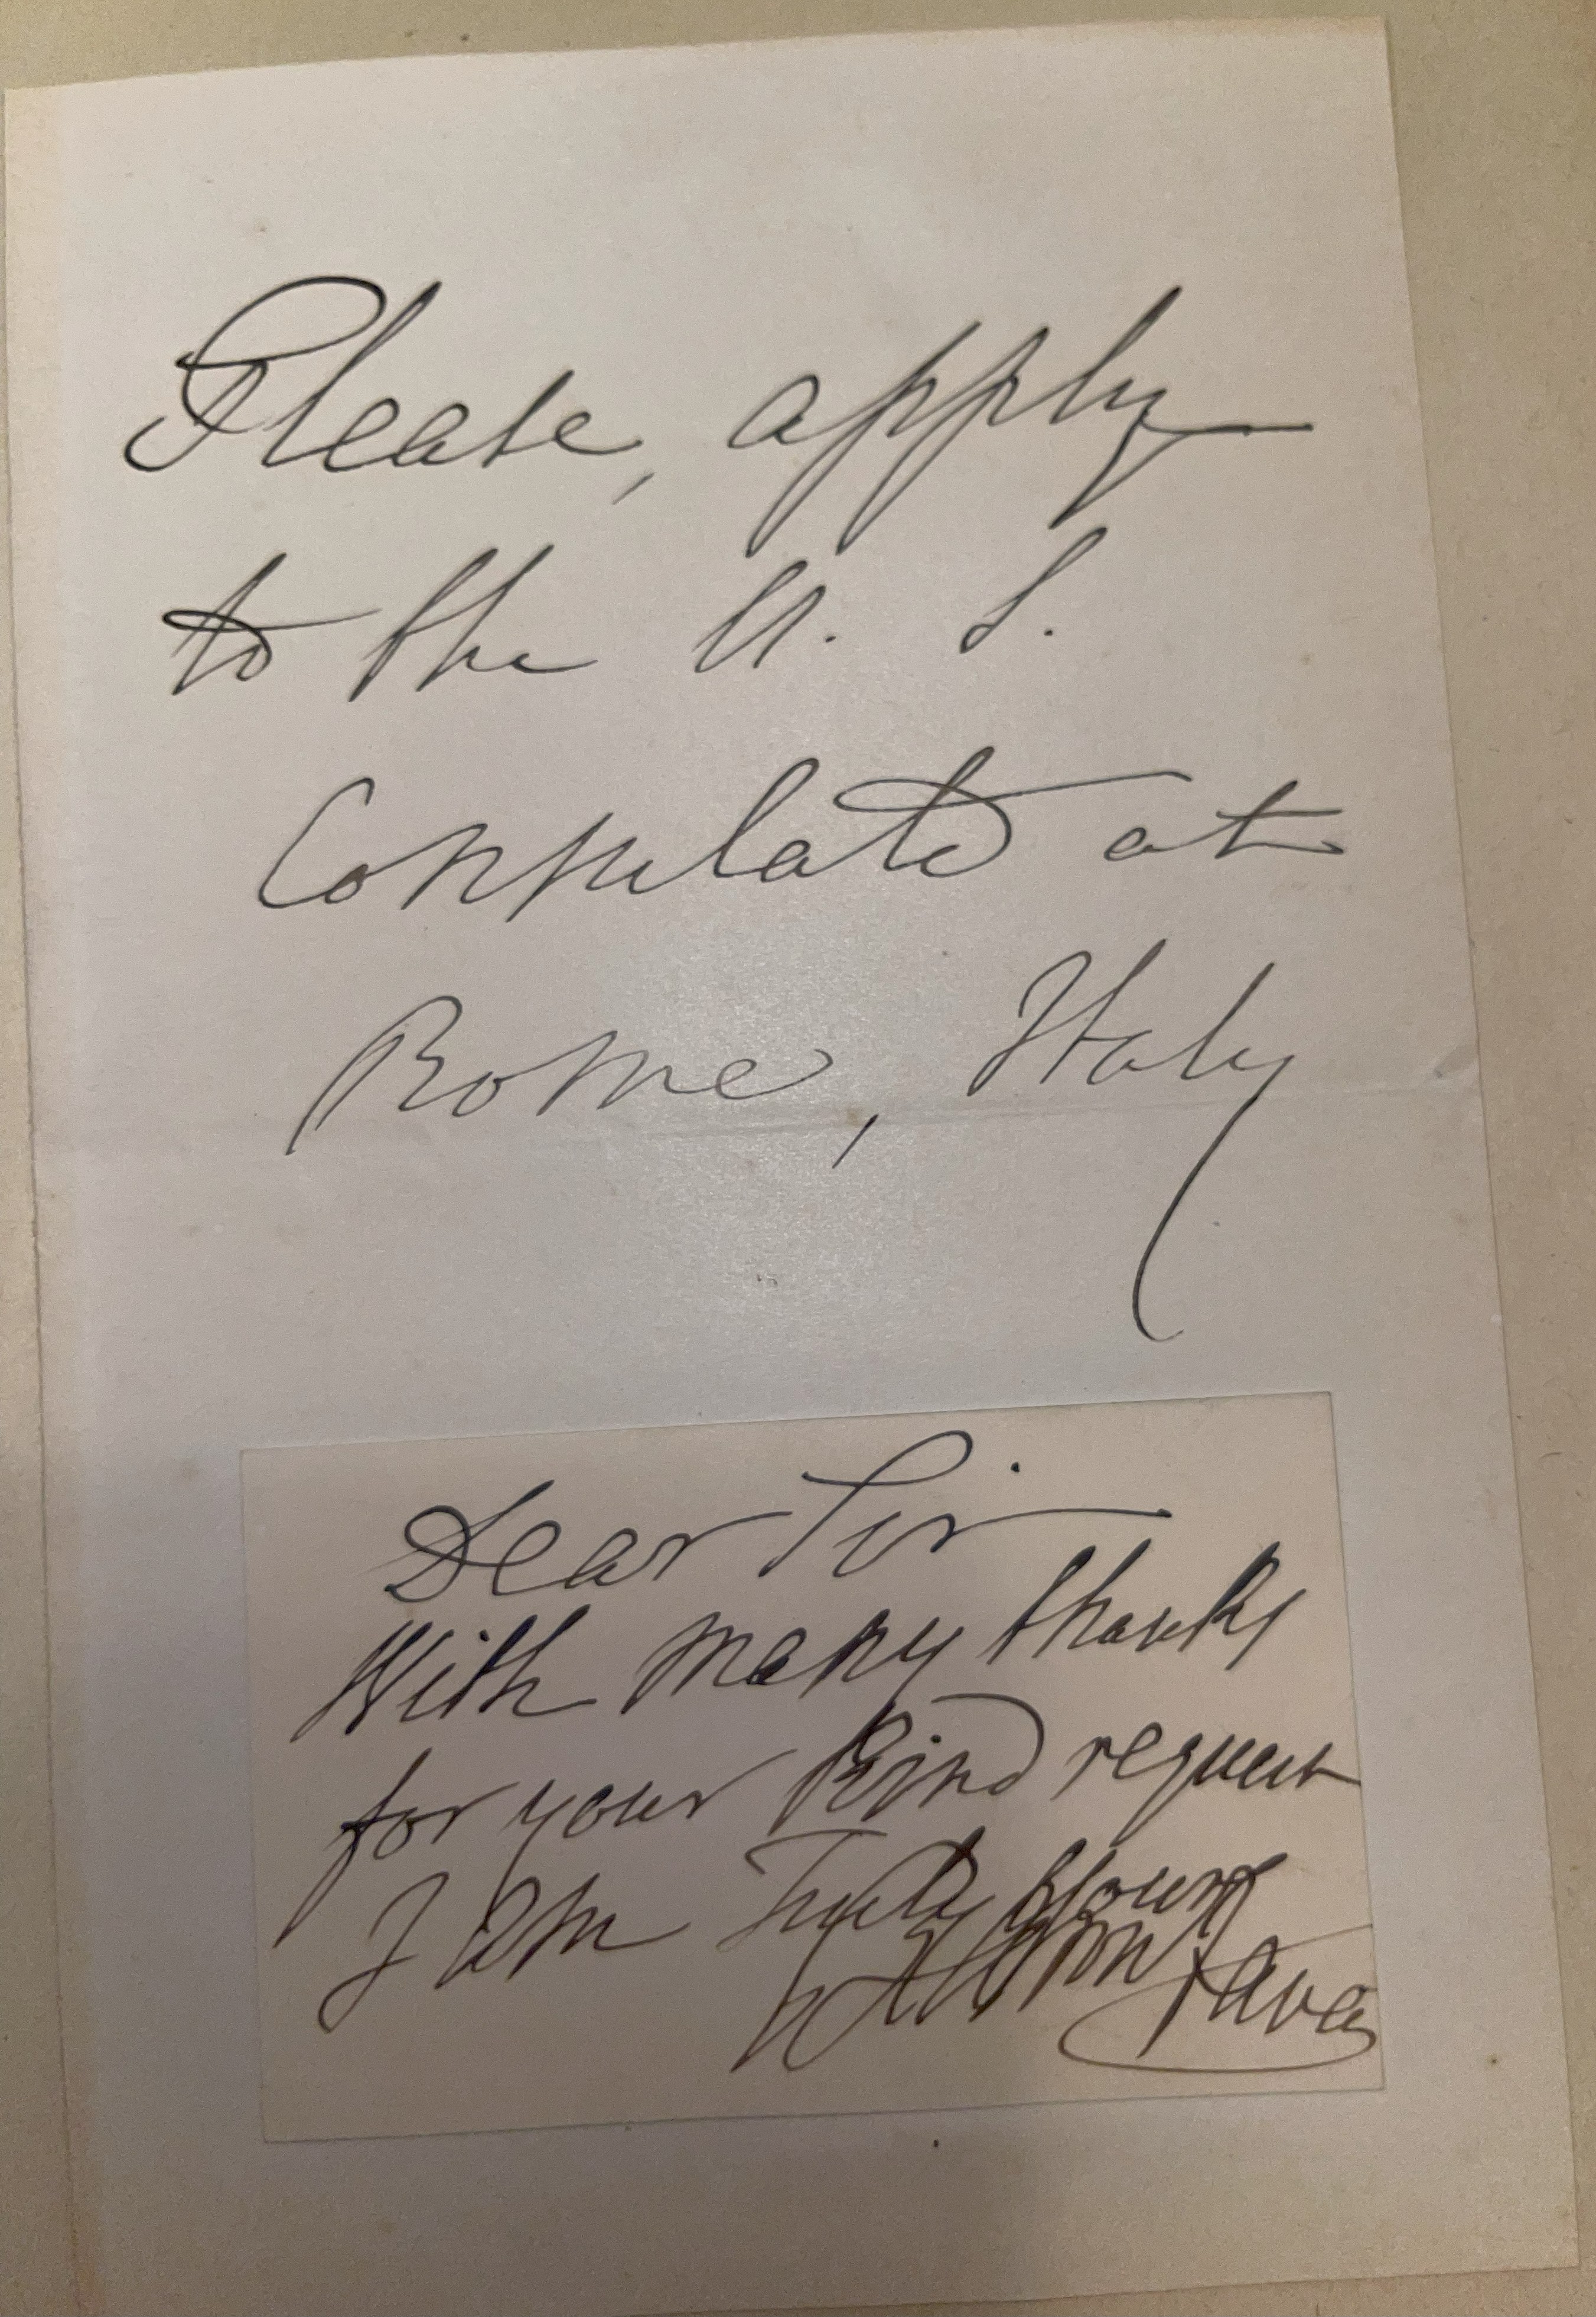 Please, apply
to the U. S.
Consulate at
Rome, Italy
Dear Sir
With many thanks
for your Kind request
I am Truly Yours